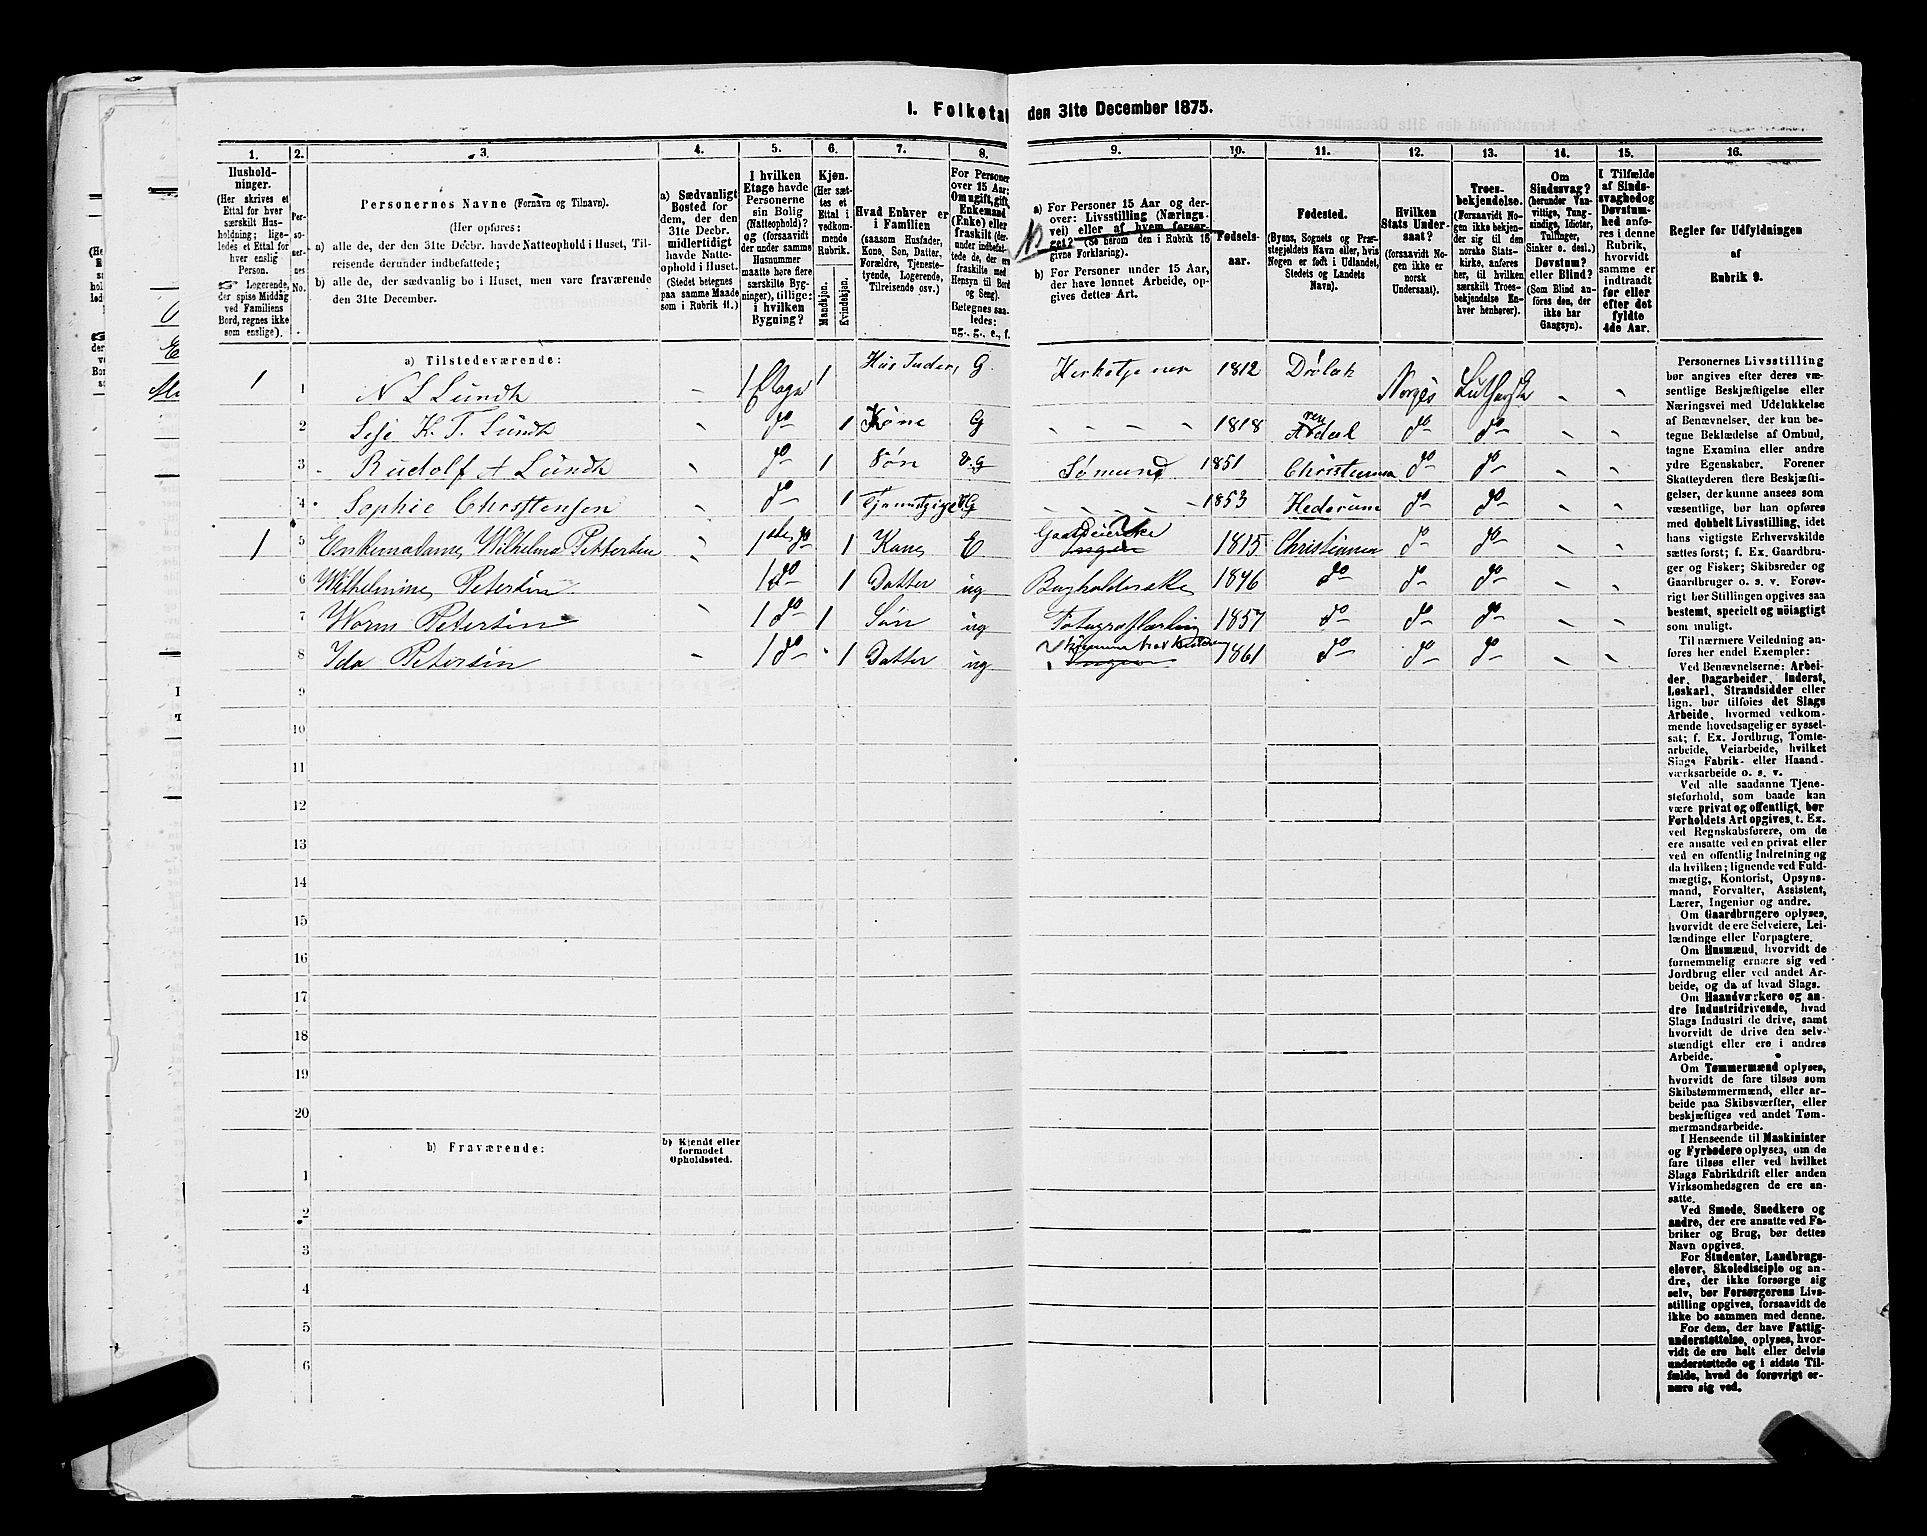 1. Folketa den 31te December 1875.
1. 2. 3. 4. 5. 6. 7. 8. 9. 10. 11. 12. 13. 14. 15. 16.
Hushold-
ninger.
(Her skrives et
Ettal for hver
særskilt Hus-
holdning; lige-
ledes et Ettal for
hver enslig
Person.
Logerende,
der spise Middag
ved Familiens
Bord, regnes ikke
som enslige).
Per-
so-
ner-
nes
No.
Personernes Navne (Fornavn og Tilnavn).
(Her opføres:
a) alle de, der den 31te Decbr. havde Natteophold i Huset, Til-
reisende derunder indbefattede;
b) alle de, der sædvanlig bo i Huset, men vare fraværende
den 31te December.
a) Sædvanligt
Bosted for
dem, der den
31te Decbr.
midlertidigt
havde Natte-
ophold i Huset.
(Stedet betegnes
paa samme Maade
som i Rubrik 11.)
I hvilken
Etage havde
Personerne
sin Bolig
(Natteophold)?
og (forsaavidt
der under samme
Husnummer
maatte høre flere
særskilte Byg-
ninger), tillige:
i hvilken
Bygning?
Kjøn.
(Her sæt-
tes et
Ettal i
vedkom-
mende
Rubrik.
Mandkjøn.
Kvindekjøn.
Hvad Enhver er
i Familien
(saasom Husfader,
Kone, Søn, Datter,
Forældre, Tjeneste-
tyende, Logerende,
Tilreisende osv.)
For Personer
over 15 Aar:
Om ugift, gift,
Enkemand
(Enke) eller
fraskilt (der-
under indbefat-
tede de, der ere
fraskilte med
Hensyn til Bord
og Seng).
Betegnes saa-
ledes:
ug., g., e., f.
a) For Personer 15 Aar og der-
over: Livsstilling (Nærings-
vei) eller af hvem forsør-
get? (Se herom den i Rubrik 16
givne Forklaring).
b) For Personer under 15 Aar,
der have lønnet Arbeide, op-
gives dettes Art.
Fødsels-
aar.
Fødested.
(Byens, Sognets og Præ-
stegjeldets Navn eller, hvis
Nogen er født i Udlandet,
Stedets og Landets
Navn).
Hvilken
Stats Under-
saat?
(forsaavidt No-
gen ikke er
norsk
Undersaat).
Troes-
bekjendelse.
(Forsaavidt No-
gen ikke bekjen-
der sig til den
norske Stats-
kirke, anføres
her, til hvilken
særskilt Troes-
bekjendelse En-
hver henhører).
Om
Sindssvag?
(herunder Van-
vittige, Tung-
sindige, Idioter,
Tullinger,
Sinker o. desl.)
Døvstum?
eller Blind?
(Som Blind an-
føres den, der
ikke har
Gangsyn).
I Tilfælde
af Sinds-
svaghed og
Døvstum-
hed anfø-
res i denne
Rubrik,
hvorvidt
samme er
indtraadt
før eller
efter det
fyldte
4de Aar.
Regler for Udfyldningen
af
Rubrik 9.
a) Tilstedeværende:
1 1 N L Lundh 1 Etage 1 Hus fader G Kirketjener 1812 Drøbak Norges Luthersk
2 Lese H. T. Lundh do 1 Kone G 1818 Arendal do do
3 Rudolf A Lundh do 1 Søn U.G Sømand 1851 Christiania do do
4 Sophie Christensen do 1 Tjenestpige UG 1853 Hederum do do
1 5 Enkemadame Wilhelma Pettersen 1ste do 1 Kone E Gaardeierske 1815 Christiania do do
6 Wilhelmine Petersen 1 do 1 Datter ug Bogholderske 1846 do do do
7 Worm Petersen 1 do 1 Søn ug FotografLærling 1857 do do do
8 Ida Petersen 1 do 1 Datter ug 1861 do do do
9
10
11
12
13
14
15
16
17
18
19
20
b) Fraværende:
b) Kjendt eller
formodet
Opholdssted.
1
2
3
4
5
6
Personernes Livsstilling
bør angives efter deres væ-
sentlige Beskjæftigelse eller
Næringsvei med Udelukkelse
af Benævnelser, der kun be-
tegne Beklædelse af Ombud,
tagne Examina eller andre
ydre Egenskaber. Forener
Skatteyderen flere Beskjæfti-
gelser, der kunne ansees som
væsentlige, bør han opføres
med dobbelt Livsstilling, idet
hans vigtigste Erhvervskilde
sættes først; f. Ex. Gaardbru-
ger og Fisker; Skibsreder og
Gaardbruger o. s. v. Forøv-
rigt bør Stillingen opgives saa
bestemt, specielt og nöiagtigt
som muligt.
Til nærmere Veiledning an-
føres her endel Exempler:
Ved Benævnelserne: Arbei-
der, Dagarbeider, Inderst,
Løskarl, Strandsidder eller
lign. bør tilføies det Slags
Arbeide, hvormed vedkom-
mende hovedsagelig er syssel-
sat; f. Ex. Jordbrug, Tomte-
arbeide, Veiarbeide, hvilket
Slags Fabrik- eller Haand-
værksarbeide o. s. v.
Ved alle saadanne Tjene-
steforhold, som baade kan
være privat og offentligt, bør
Forholdets Art opgives, t. Ex.
ved Regnskabsførere, om de
ere ansatte ved en privat eller
ved en offentlig Indretning og
da hvilken; lignende ved Fuld-
mægtig, Kontorist, Opsyns-
mand, Forvalter, Assistent,
Lærer, Ingeniør og andre.
Om Gaardbrugere oplyses,
hvorvidt de ere Selveiere, Lei-
lændinge eller Forpagtere.
Om Husmænd, hvorvidt de
fornemmelig ernære sig ved
Jordbrug eller ved andet Ar-
beide, og da af hvad Slags.
Om Haandværkere og an-
dre Industridrivende, hvad
Slags Industri de drive, samt
hvorvidt de drive den selv-
stændigt eller ere i andres
Arbeide.
Om Tømmermænd oplyses,
hvorvidt de fare tilsøs som
Skibstømmermænd, eller ar-
beide paa Skibsværfter, eller
beskjæftiges ved andet Tøm-
mermandsarbeide.
I Henseende til Maskinister
og Fyrbødere oplyses, om de
fare tilsøs eller ved hvilket
Slags Fabrikdrift eller anden
Virksomhedsgren de ere an-
satte.
Ved Smede, Snedkere og
andre, der ere ansatte ved Fa-
briker og Brug, bør dettes
Navn opgives.
For Studenter, Landbrugs-
elever, Skoledisciple og an-
dre, der ikke forsørge sig
selv, bør Forsørgerens Livs-
stilling opgives, forsaavidt de
ikke bo sammen med denne.
For dem, der have Fattig-
understøttelse, oplyses, hvor-
vidt de ere helt eller delvis
understøttede og i sidste Til-
fælde, hvad de forøvrigt er-
nære sig ved.